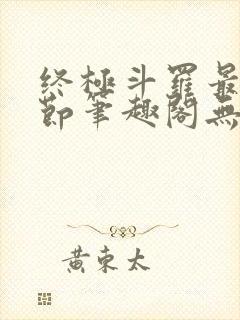 终極斗羅最
節筆趣閣無
黃東太